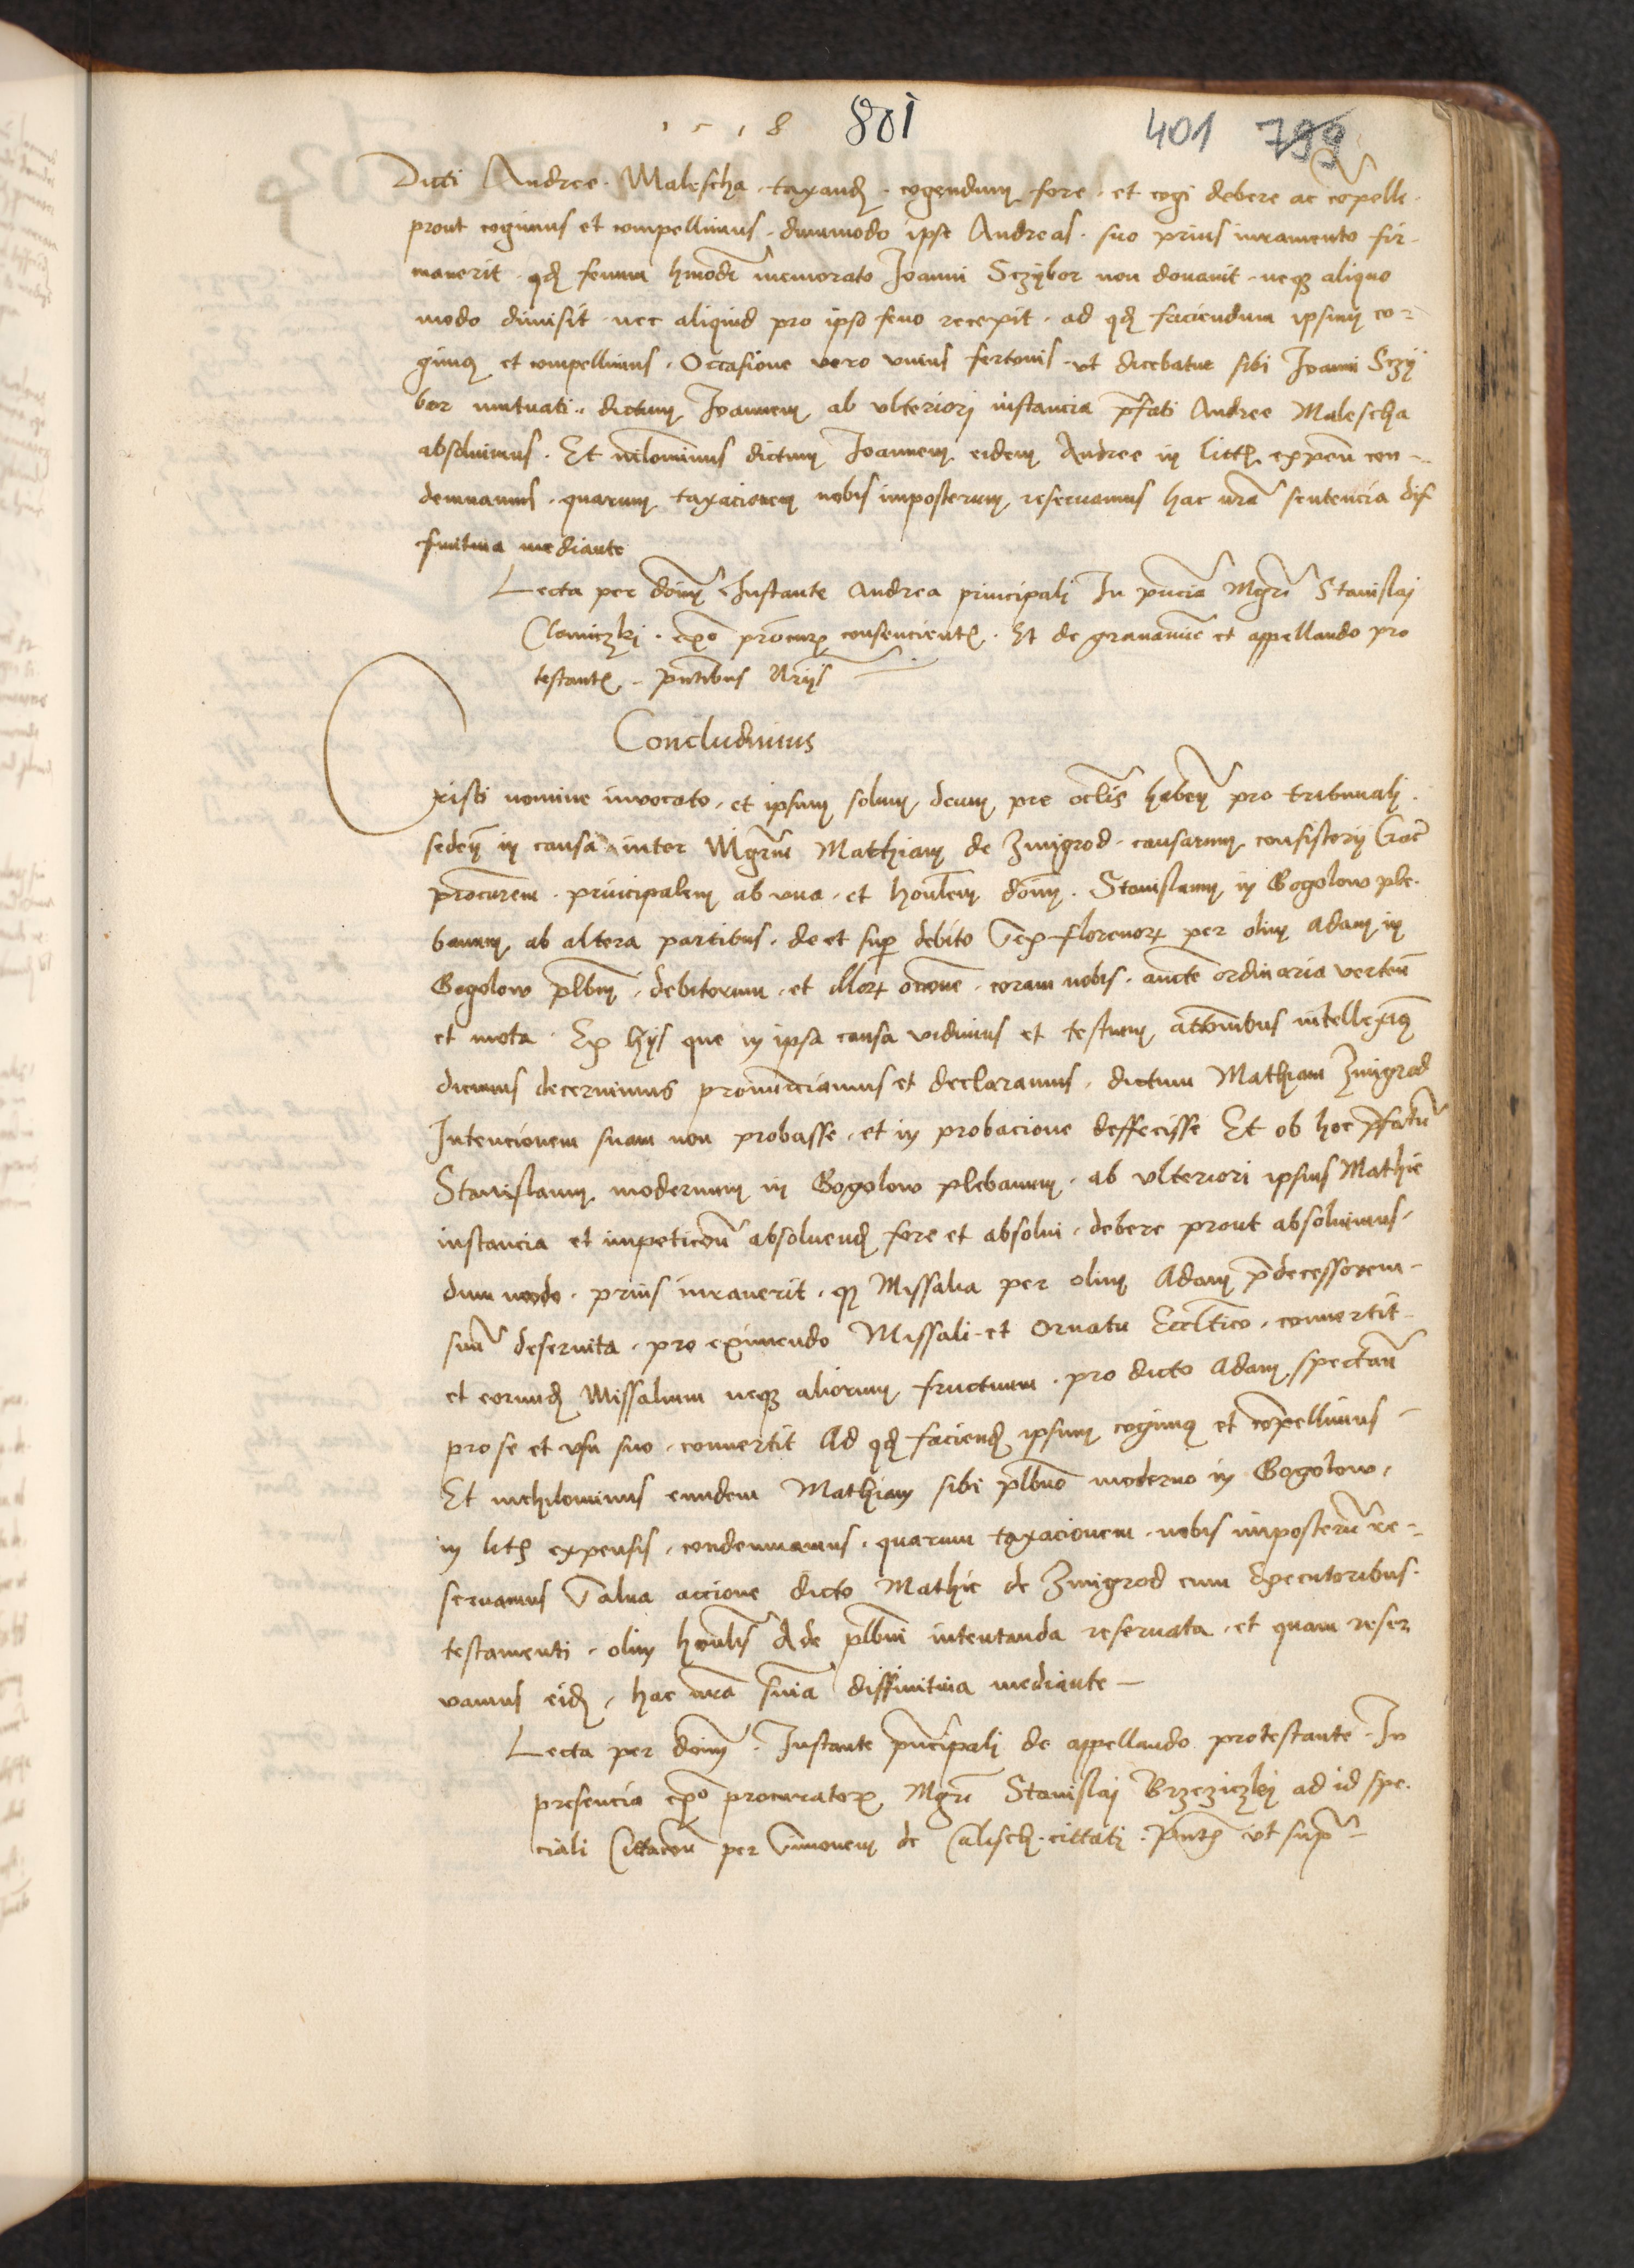 1518 801 401 799
Dicti Andree Malescha taxand cogendum fore et cogi debere ac copelle
prout cogimus et compellimus dummodo ipse Andreas suo prius iuramento fir-
mauerit qd fenum hmodi memorato Joanni Sczybor non donauit neq aliquo
modo dimisit nec aliquid pro ipso feno recepit ad qd faciendum ipsum co=
gimus et compellimus Occasione vero vnius fertonis vt dicebatur sibi Joanni Sczy
bor mutuati dictum Joannem ab vlteriori instancia pfati Andree Malescha
absoluimus Et nilominus dictum Joannem eidem Andree in litt expen con-
demnamus quarum taxacionem nobis imposterum reseruamus hac nra sentencia dif
finitiua mediante
Lecta per dnm Instante Andrea principali In pncia Mgri Stanislaj
expo procur consencient Et de grauamine et appellando pro
testant pntibus Nriis
Concludimus
Cristi nomine inuocato et ipsum solum deum pre oclis haben pro tribunali
seden in causa inter Mgrm Mathiam de Zmigrod causarum consistorij Crac
procurem principalem ab vna et honlem dnm Stanislaum in Gogolow ple-
banum ab altera partibus de et sup debito Sex florenor per olim Adam in
Gogolow plbm debitorum et illor occone coram nobis aucte ordinaria verten
et mota Ex hijs que in ipsa causa vidimus et testium attonibus intelleximq
dicimus decernimus pronunciamus et declaramus dictum Mathiam Zmigrod
Intencionem suam non probasse et in probacione deffecisse Et ob hoc pfatum
Stanislaum modernum in Gogolow plebanum ab vlteriori ipsius Mathie
instancia et impeticon absoluend fore et absolui debere prout absoluimus
dum modo prius iurauerit q Missalia per olim Adam pdecessorem
suum deseruita pro eximendo Missali et Ornatu Eccltico conuertit
et eorund Missalium neq aliorum fructuum pro dicto Adam spectan
pro se et vsu suo conuertit Ad qd faciend ipsum cogimq et copellimus
Et nichilominus eundem Mathiam sibi plbno moderno in Gogolow
in litt expensis condemnamus quarum taxacionem nobis imposteru re=
seruamus Salua accione dicto Mathie de Zmigrod cum Executoribus
testamenti olim honlis Ade plbni intentanda reseruata et quam reser
uamus eid hac nra snia diffinitiua mediante
Lecta per dnm Instante pncipali de appellando protestante In
presencia expo procurator Mgri Stanislaj Brzeziczky ad id spe-
ciali Cittacon per Simonem de Calisch cittati pnt vt sup